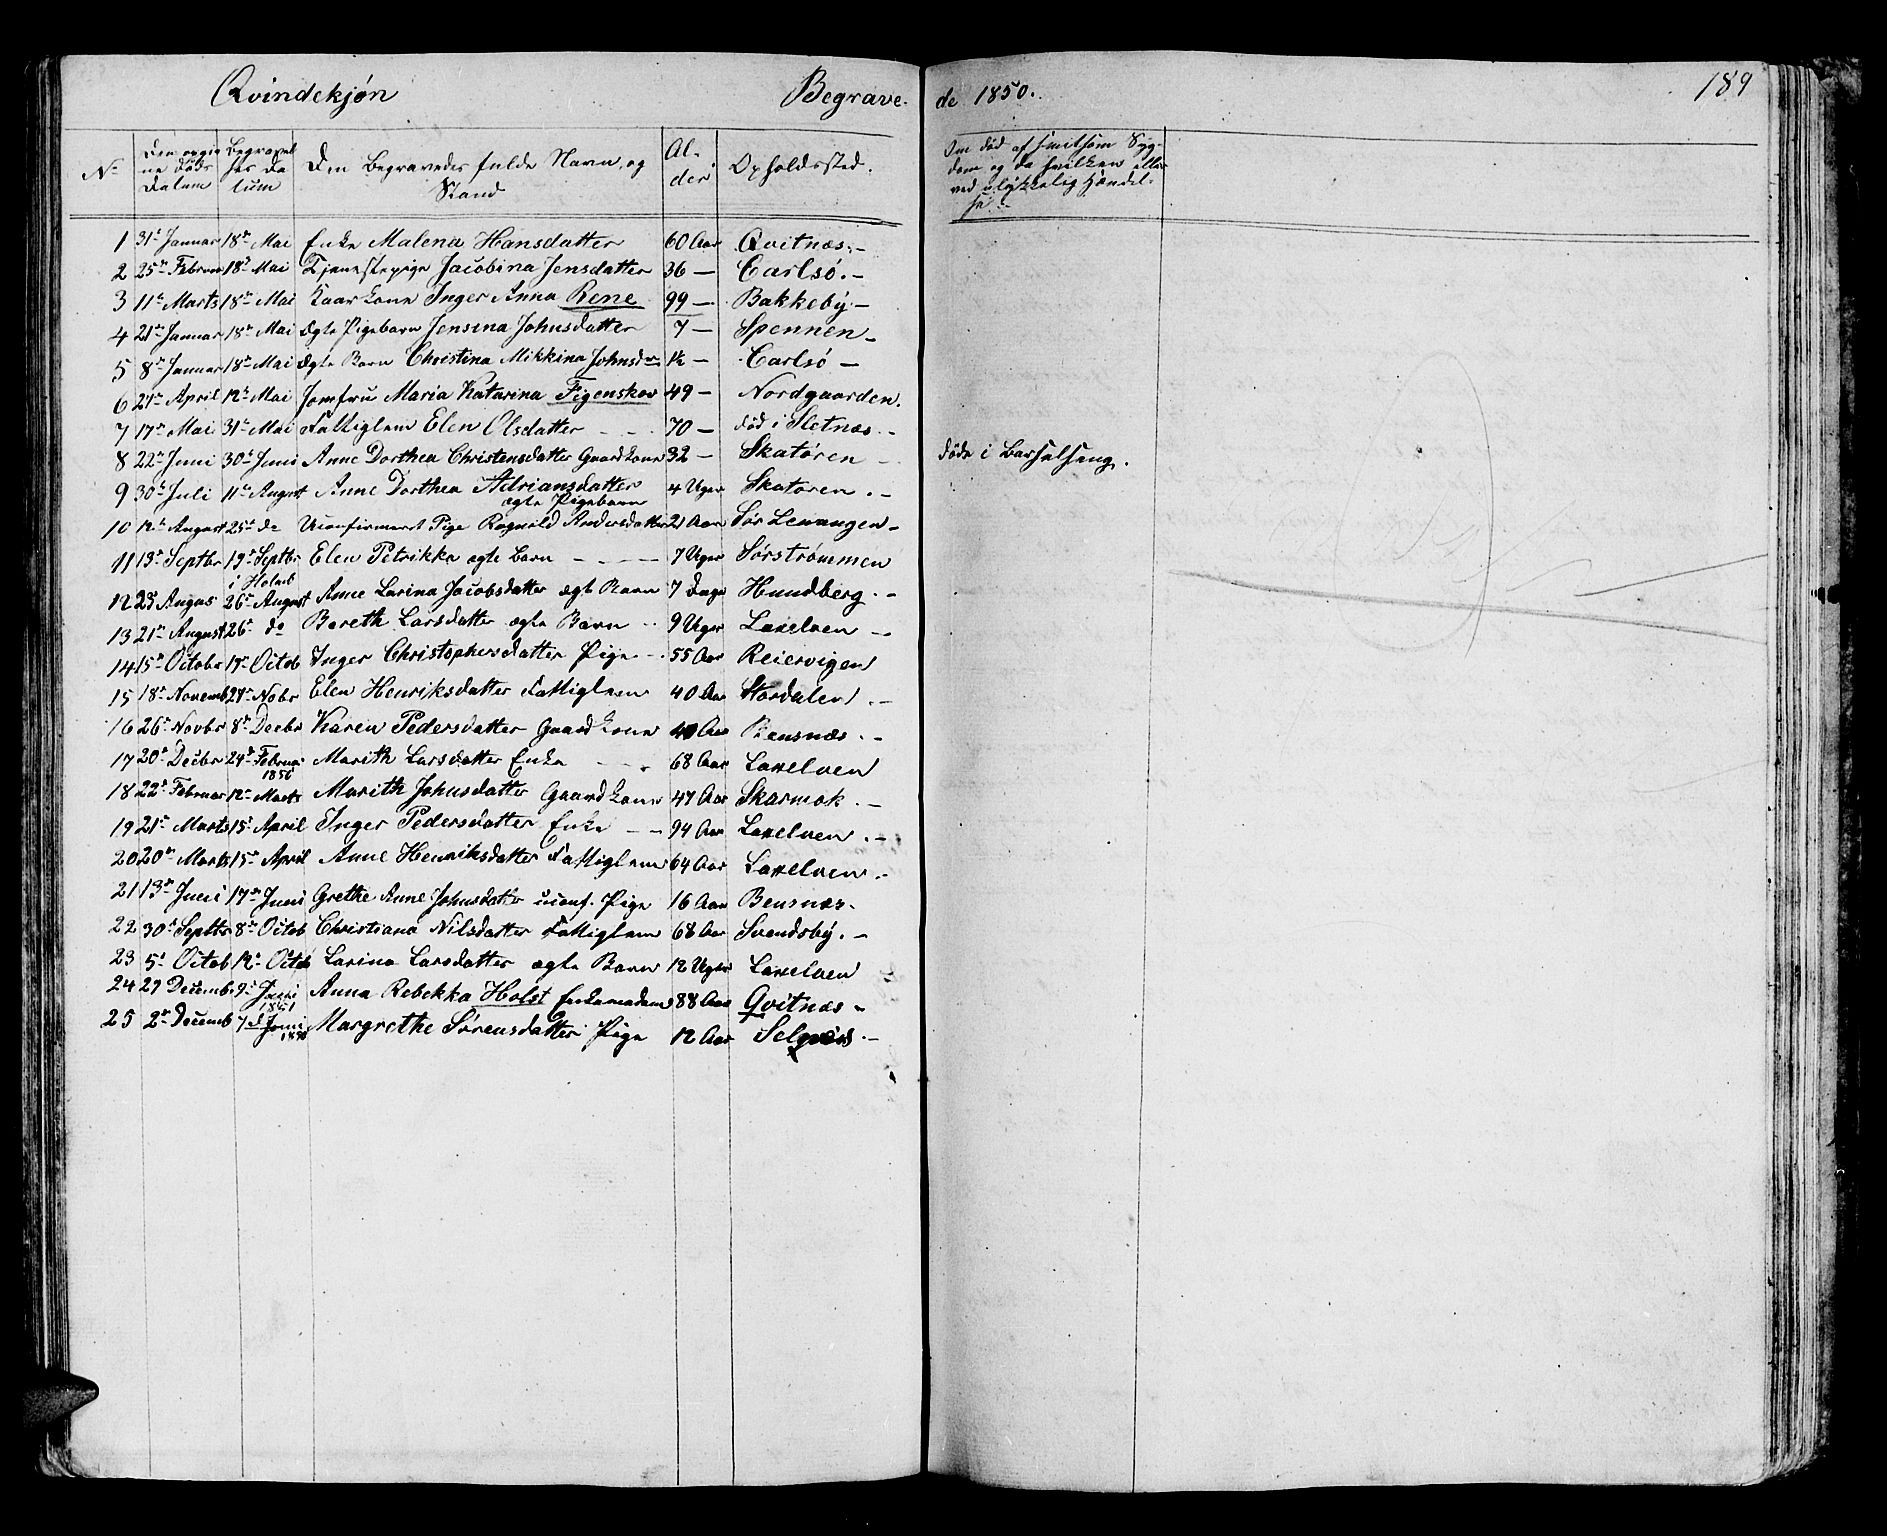 Qvindekjøn Begravede 1850. 189
No Den opgivne Døds Datum Begravelses Datum Den Begravedes fulde Navn og Stand Alder Opholdssted. Om død af smitsom Sygdom og da hvilken eller ved ulykkelig Hændelse.
1 31te Januar 18de Mai Enke Malena Hansdatter 60 Aar Qvitnæs. -
2 25de Februar 18de Mai Tjenestepige Jacobina Jensdatter 36 — Carlsø. -
3 11te Marts 18de Mai Kaarkone Inger Anna Rene 99 — Bakkeby. -
4 21de Januar 18de Mai ægte Pigebarn Jensina Johnsdatter 7 — Spennen -
5 8de Januar 18de Mai ægte Barn Christina Mikkina Johnsdr 1½ — Carlsø —
6 21de April 12te Mai Jomfru Maria Katarina Figenskov 49 — Nordgaarden.
7 17de Mai 31te Mai Fattiglem Elen Olsdatter - - . 70 — død i Sletnæs. -
8 22de Juni 30te Juni Anne Dorthea Christensdatter Gaardkone 32 — Skatøren - døde i Barselseng.
9 30te Juli 11te August Anne Dorthea Adriansdatter 4 Uger Skatøren. -
ægte Pigebarn
10 12te August 25de do Uconfirmeret Pige Ragnild Andersdatter 21 Aar Sør Lenangen -
11 13de Septbr 19de Septbr Elen Petrikka ægte Barn - - - - 7 Uger Sørstrømmen
i Holmb
12 23 Augus 26de August Anne Larina Jacobsdatter ægt Barn 7 Dage Hundberg. -
13 21de August 26de do Bereth Larsdatter ægte Barn - 9 Uger Laxelven -
14 15de Octobr 19de Octob Inger Christophersdatter Pige - . 55 Aar Reiervigen
15 18de Novemb 24de Nobr Elen Henriksdatter Fattiglem 40 Aar Stordalen. -
16 26de Novbr 8de Decbr Karen Pedersdatter Gaardkone 40 Aar Bensnæs. -
17 20de Decbr 24de Februar Marith Larsdatter Enke - - . 68 Aar Laxelven
18 22de Februar 12te Marts Marith Johnsdatter Gaardkone 47 Aar Skarmok. -
19 21de Marts 15de April Inger Pedersdatter Enke - - 94 Aar Laxelven. -
20 20de Marts 15de April Anne Henriksdatter Fattiglem 64 Aar Laxelven. -
21 13de Juni 17de Juni Grethe Anne Johnsdatter uconf. Pige 16 Aar Bensnæs.
22 30te Septbr 8de Octob Christiana Nilsdatter Fattiglem 68 Aar Svendsby. -
23 5te Octob 12te Octob Larina Larsdatter ægte Barn 12 Uger Laxelven
24 29 Decemb. 9de Juni 1851 Anna Rebekka Holst Enkemadam 88 Aar Qvitnæs -
25 2den Decemb 7de Juni Margrethe Sørensdatter Pige 12 Aar Selgnæs. -